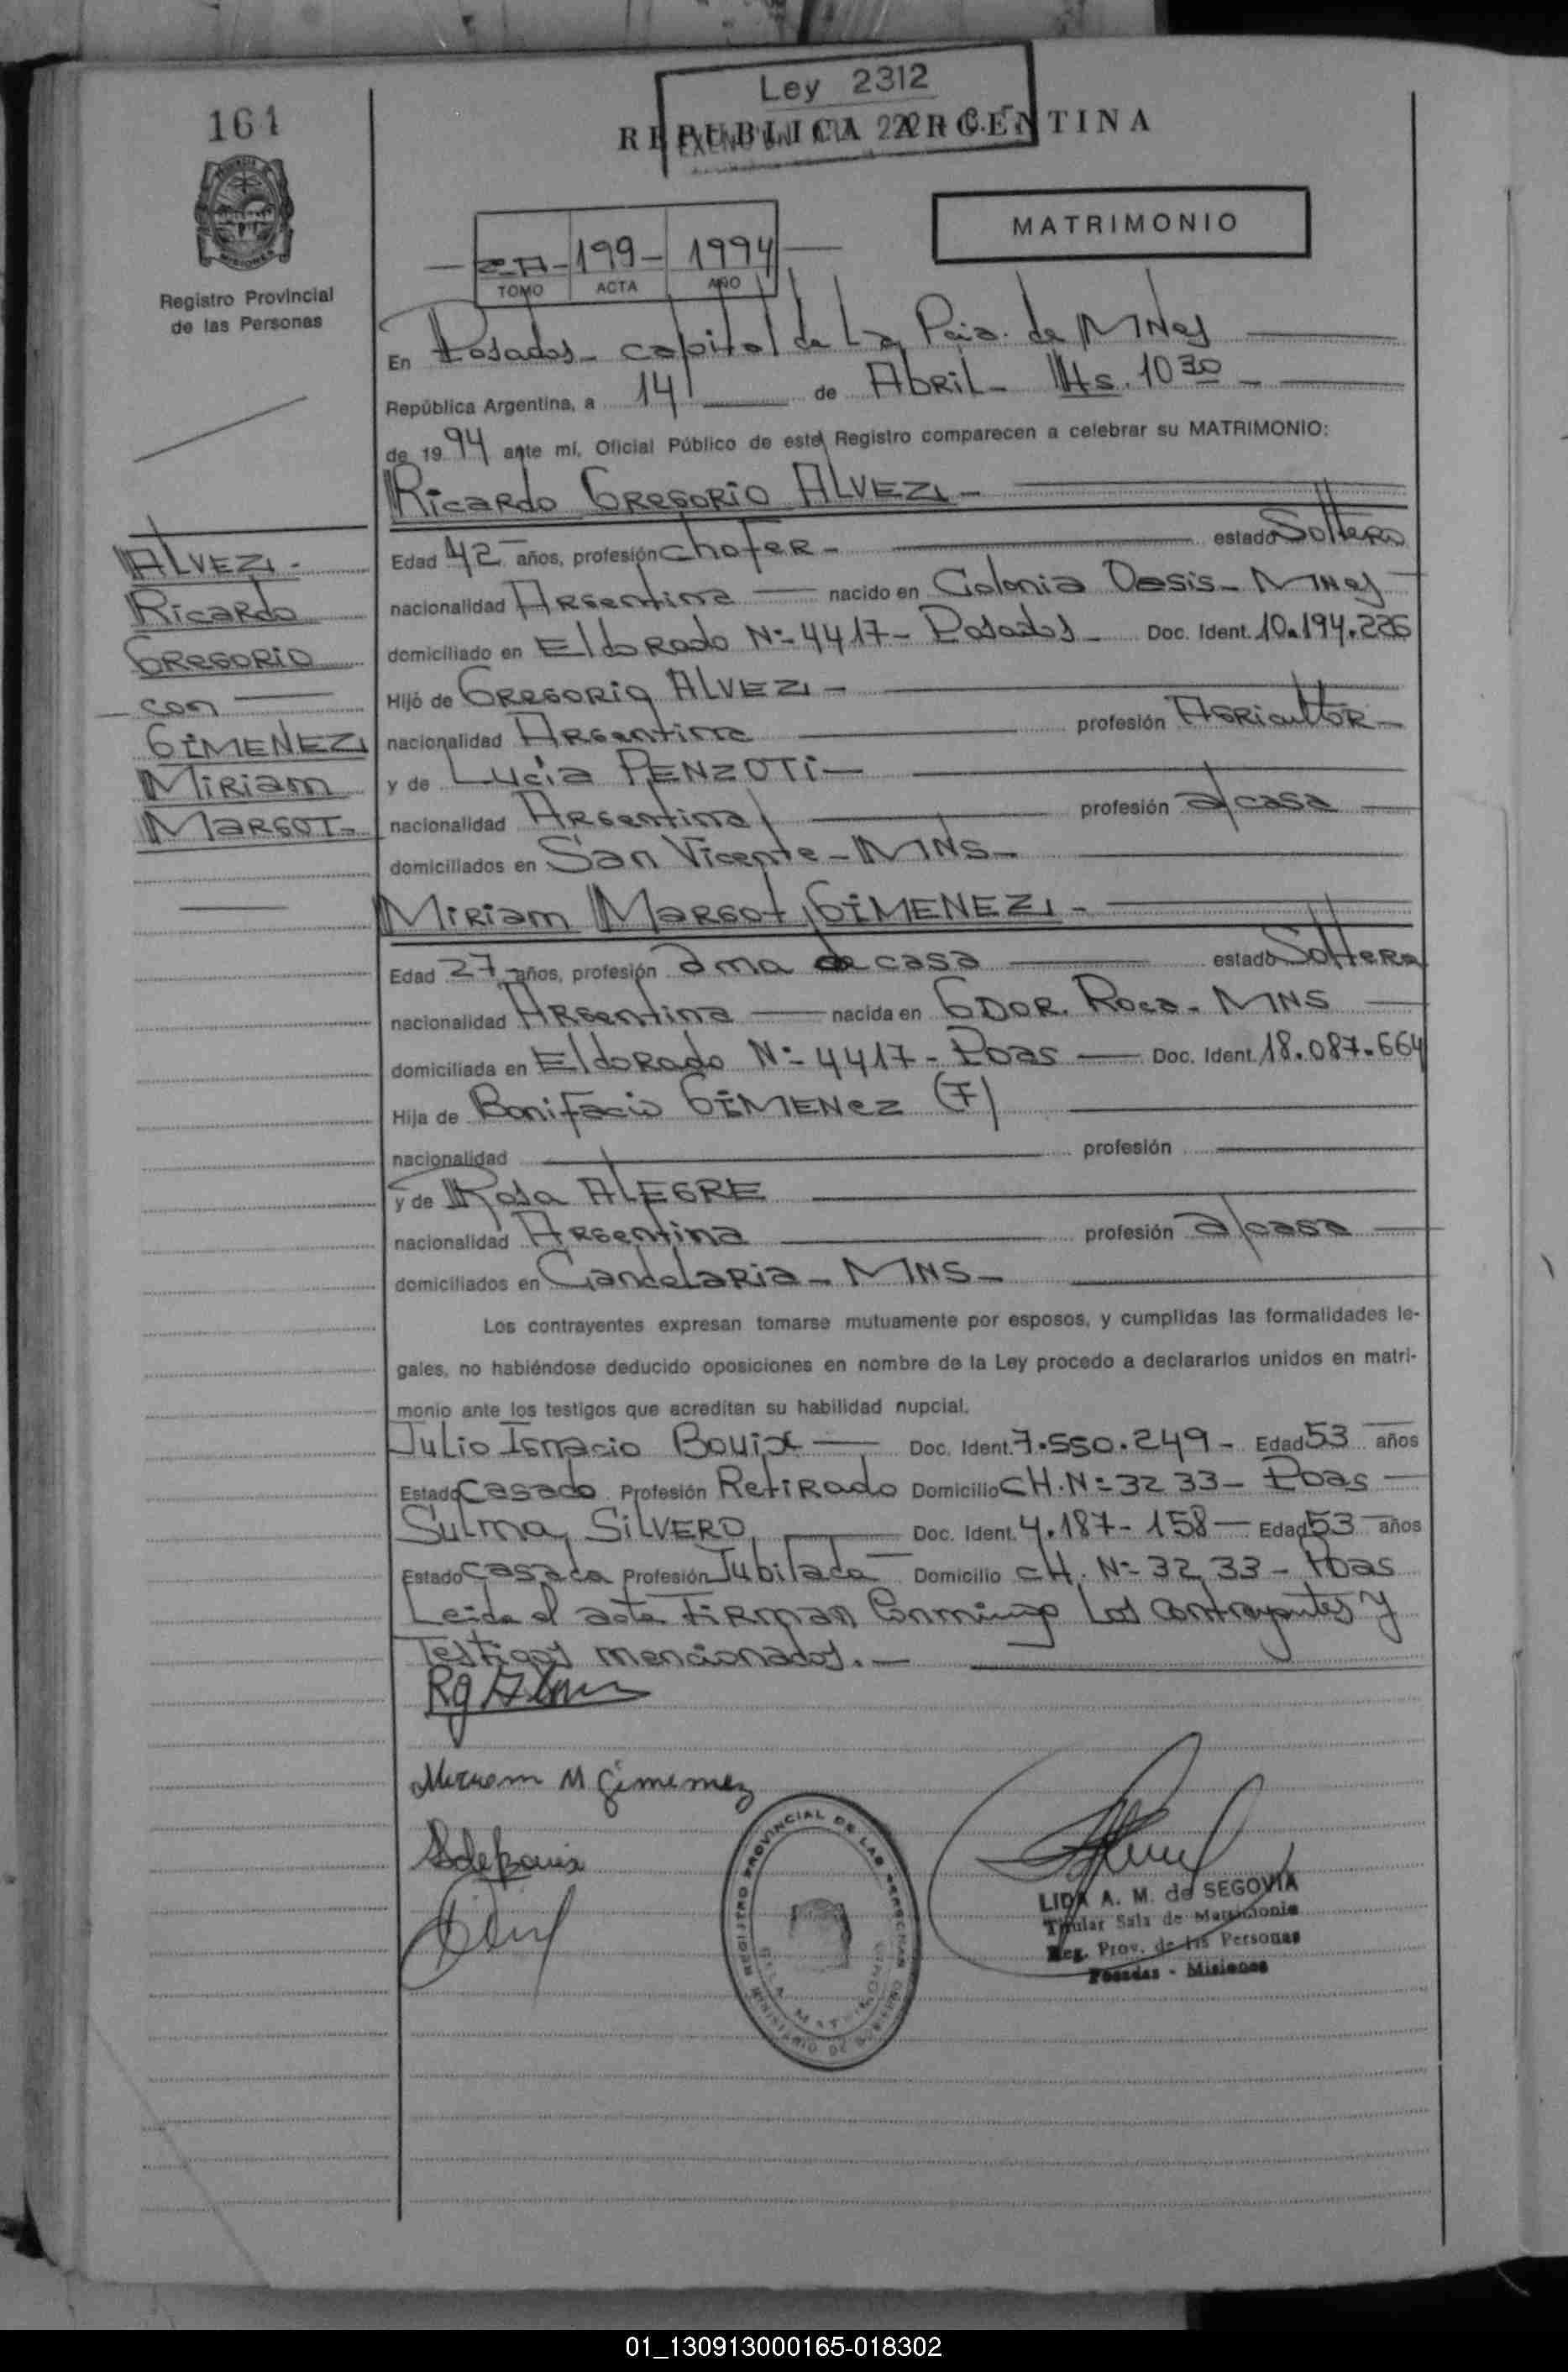 161
Ley 2312
REPUBLICA ARGENTINA
MATRIMONIO
199- 1994
TOMO ACTA AÑO
Registro Provincial
de las Personas
En Posadas - capital de La Pcia. de MNes
República Argentina, a 14 de Abril - Hs. 10 30
de 1994 ante mí, Oficial Público de este Registro comparecen a celebrar su MATRIMONIO:
Ricardo Gregorio ALVEZ -
Edad 42 años, profesión chofer - estado Soltero
nacionalidad Argentina nacido en Colonia Oasis - MNes
domiciliado en Eldorado Nº 4417 - Posadas - Doc. Ident. 10.194.226
Hijo de Gregorio ALVEZ -
nacionalidad Argentina profesión Agricultor -
y de Lucia PENZOTi -
nacionalidad Argentina profesión a/casa
domiciliados en San Vicente - MNS -
Miriam Margot GIMENEZ -
Edad 27 años, profesión ama de casa estado Soltera
nacionalidad Argentina nacida en GDOR. Roca - MNS
domiciliada en Eldorado Nº 4417 - Poas Doc. Ident. 18.087.664
Hija de Bonifacio GIMENez (F)
nacionalidad profesión
y de Rosa ALEGRE
nacionalidad Argentina profesión a/casa
domiciliados en Candelaria - MNS -
Los contrayentes expresan tomarse mutuamente por esposos, y cumplidas las formalidades le-
gales, no habiéndose deducido oposiciones en nombre de la Ley procedo a declararlos unidos en matri-
monio ante los testigos que acreditan su habilidad nupcial.
Julio Ignacio Bouix Doc. Ident. 7.550.249 - Edad 53 años
Estado Casado Profesión Retirado Domicilio CH. Nº 32 33 - Poas
Sulma SILVERO Doc. Ident. 4.187-158 Edad 53 años
Estado Casada Profesión Jubilada Domicilio CH. Nº 32 33 - Poas
Leida el acta Firman Conmigo Los contrayentes y
Testigos mencionados. -
ALVEZ -
Ricardo
Gregorio
con
GIMENEZ
Miriam
Margot -
Miriam M Gimenez
REGISTRO PROVINCIAL DE LAS PERSONAS
MINISTERIO DE GOBIERNO
LIDA A. M. de SEGOVIA
Titular Sala de Matrimonio
Reg. Prov. de las Personas
Posadas - Misiones
01_130913000165-018302